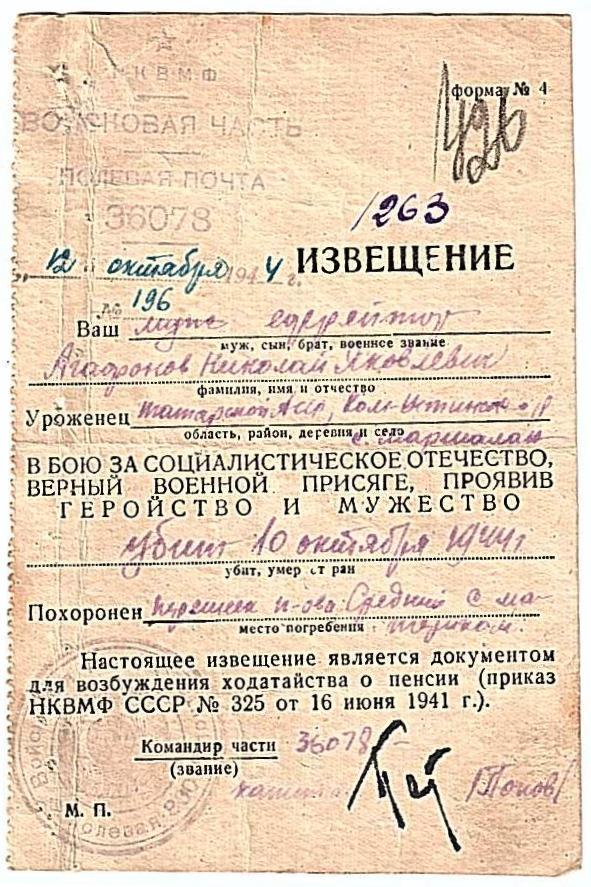 НКВМФ
форма № 4
ВОИНСКОВАЯ ЧАСТЬ
ПОЛЕВАЯ ПОЧТА
36078
1263
12 октября 1944 г.
ИЗВЕЩЕНИЕ
№ 196
Ваш муж ефрейтор
муж, сын, брат, военное звание
Агафонов Николай Яковлевич
фамилия, имя и отчество
Уроженец Татарской АССР,
область, район, деревня и село
с.
В БОЮ ЗА СОЦИАЛИСТИЧЕСКОЕ ОТЕЧЕСТВО,
ВЕРНЫЙ ВОЕННОЙ ПРИСЯГЕ, ПРОЯВИВ
ГЕРОЙСТВО И МУЖЕСТВО
убит 10 октября 1944 г
убит, умер от ран
Похоронен перешеек п-ова Средний с ма-
место погребения
териком.
Настоящее извещение является документом
для возбуждения ходатайства о пенсии (приказ
НКВМФ СССР № 325 от 16 июня 1941 г.).
Командир части 36078 -
(звание)
Попов
М. П.